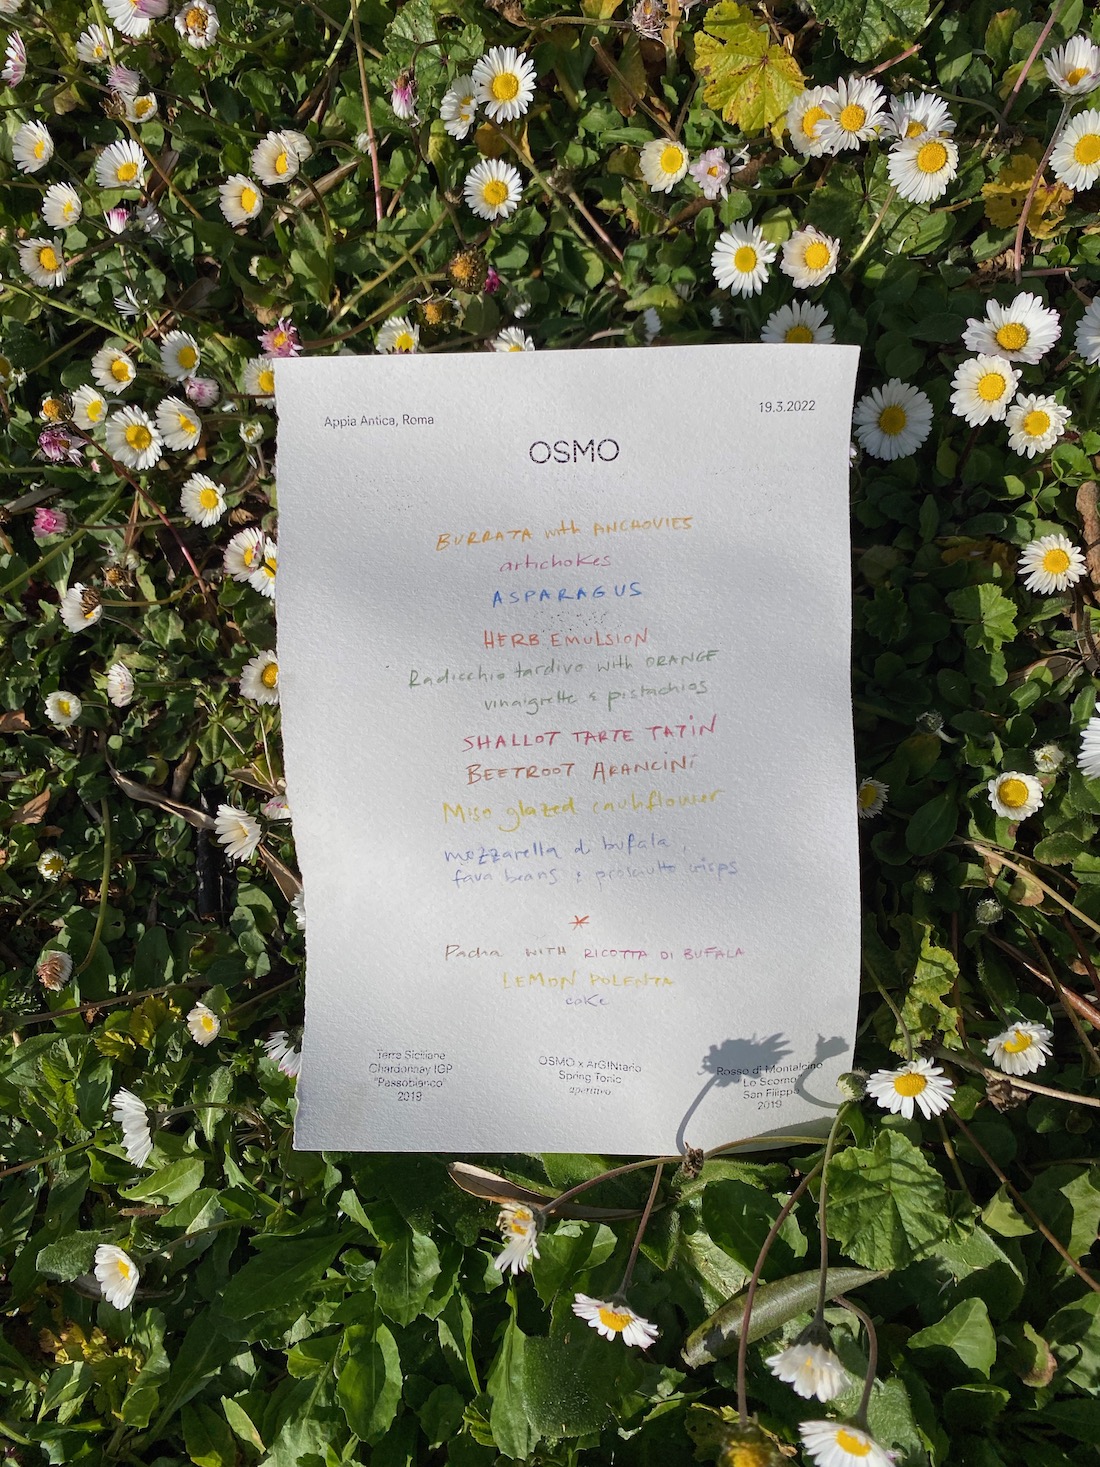 Appia Antica, Roma
19.3.2022
OSMO
BURRATA with ANCHOVIES
artichokes
ASPARAGUS
HERB EMULSION
Radicchio tardivo with ORANGE
vinaigrette & pistachios
SHALLOT TARTE TATIN
BEETROOT ARANCINI
Miso glazed cauliflower
mozzarella di bufala,
fava beans & prosciutto crisps
*
Pacha WITH RICOTTA DI BUFALA
LEMON POLENTA
cake
Terre Siciliane
Chardonnay IGP
"Passobianco"
2019
OSMO x ArGINterio
Spring Tonic
aperitivo
Rosso di Montalcino
Lo Scorno
San Filippo
2019